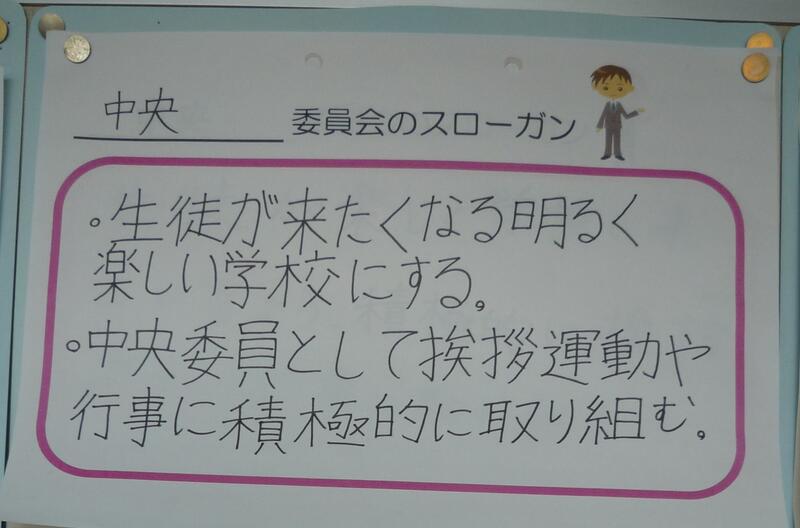 中央 委員会のスローガン
。生徒が来たくなる明るく
楽しい学校にする。
。中央委員として挨拶運動や
行事に積極的に取り組む。